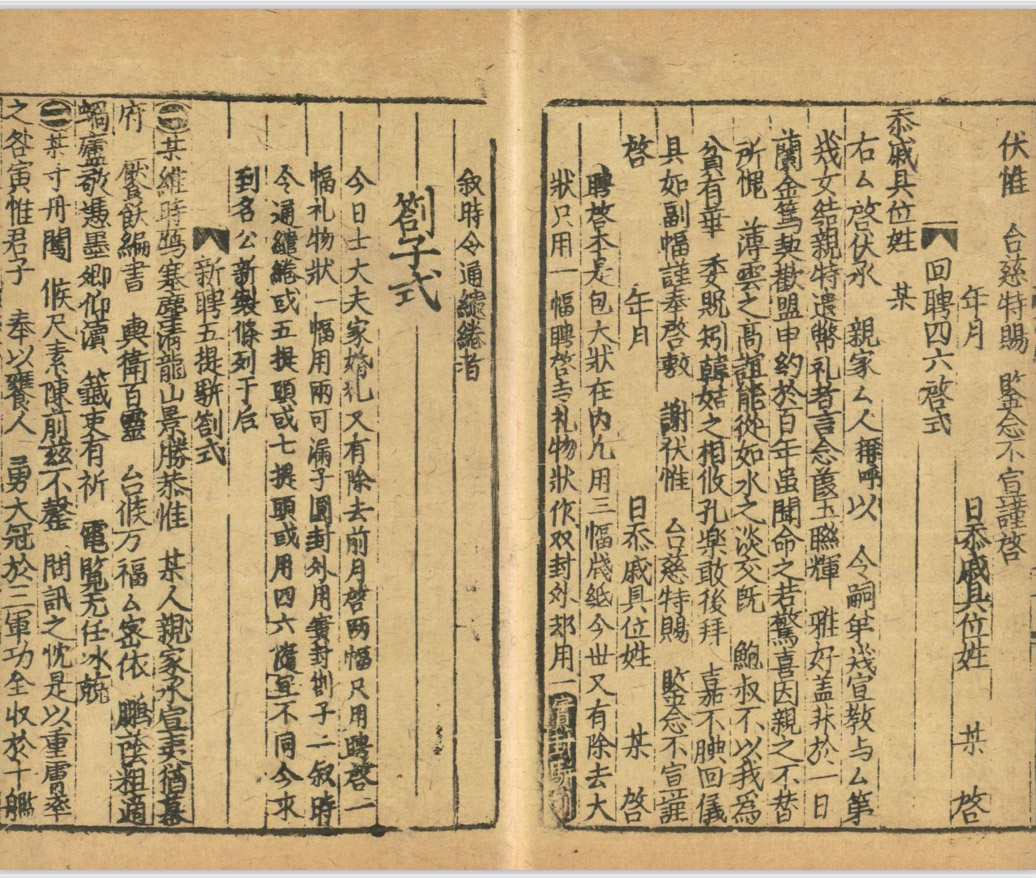 伏惟 台慈特賜 鍳念不宣謹啓
年月 日忝戚具位姓 某 啓
回聘四六啓式
忝戚具位姓 某
右厶啓伏承 親家厶人稱呼以 今嗣第幾宣教与厶第
幾女結親特遣幣礼者言念葭玉聮輝 雅好盖非於一日
蘭金篤契歡盟申約於百年虽聞命之若驚喜因親之不替
所愧 薄雲之髙誼能從如水之淡交既 鮑叔不以我爲
貧有華 委貺矧韓姞之相攸孔樂敢後拜 嘉不腆回儀
具如副幅謹奉啓敷 謝伏惟 台慈特賜 鍳念不宣謹
啓 年月 日忝戚具位姓 某 啓
聘啓本是包大狀在内凢用三幅牋紙今世又有除去大
狀只用一幅聘啓与礼物狀作双封外却用一實封
叙時令通繾綣者
劄子式
今日士大夫家婚礼又有除去前月啓两幅只用聘啓一
幅礼物狀一幅用兩可漏子圓封外用實封劄子二叙時
令通繾綣或五提頭或七提頭或用四六 不同今求
到名公新製條列于后
新聘五提駢劄式
㊀某維時鴈塞塵清龍山景勝恭惟 某人親家承宣吏猶幕
府 饜飫編書 典衛百靈 台候万福厶密依 鵬蔭粗適
蝸廬敬憑墨卿仰瀆 籤吏有祈 電覧旡任冰兢
㊁某寸丹闖 候尺素陳前兹不罄 問訊之忱是以重膚率
之咎寅惟君子 奉以饔人 勇大冠於三軍功全収於十艦